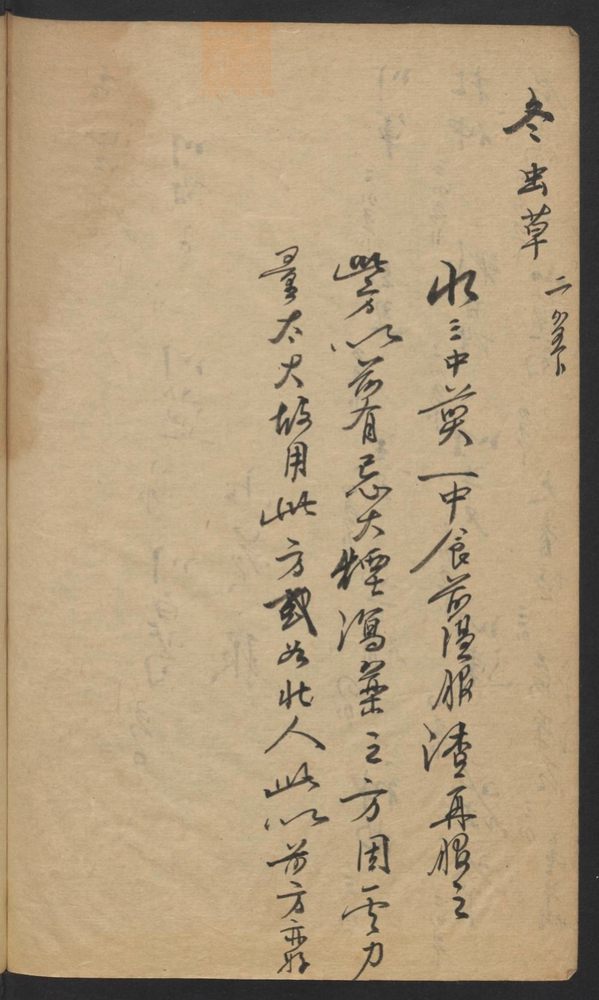 冬虫草 二
水三中煎一中食前温服渣再服之
此方以前有忌大煙瀉藥之方因其力
量太大故用此方或如壯人此以前方亦好